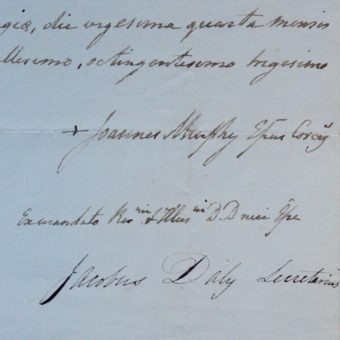 giæ, die vigesima quarta mensis
llesimo, octingentisimo trigesimo
+ Joannes Murphy Epus Corcag
Ex mandato Rev mi & Illus mi D. D mei Epi
Jacobus Daly Secretarius